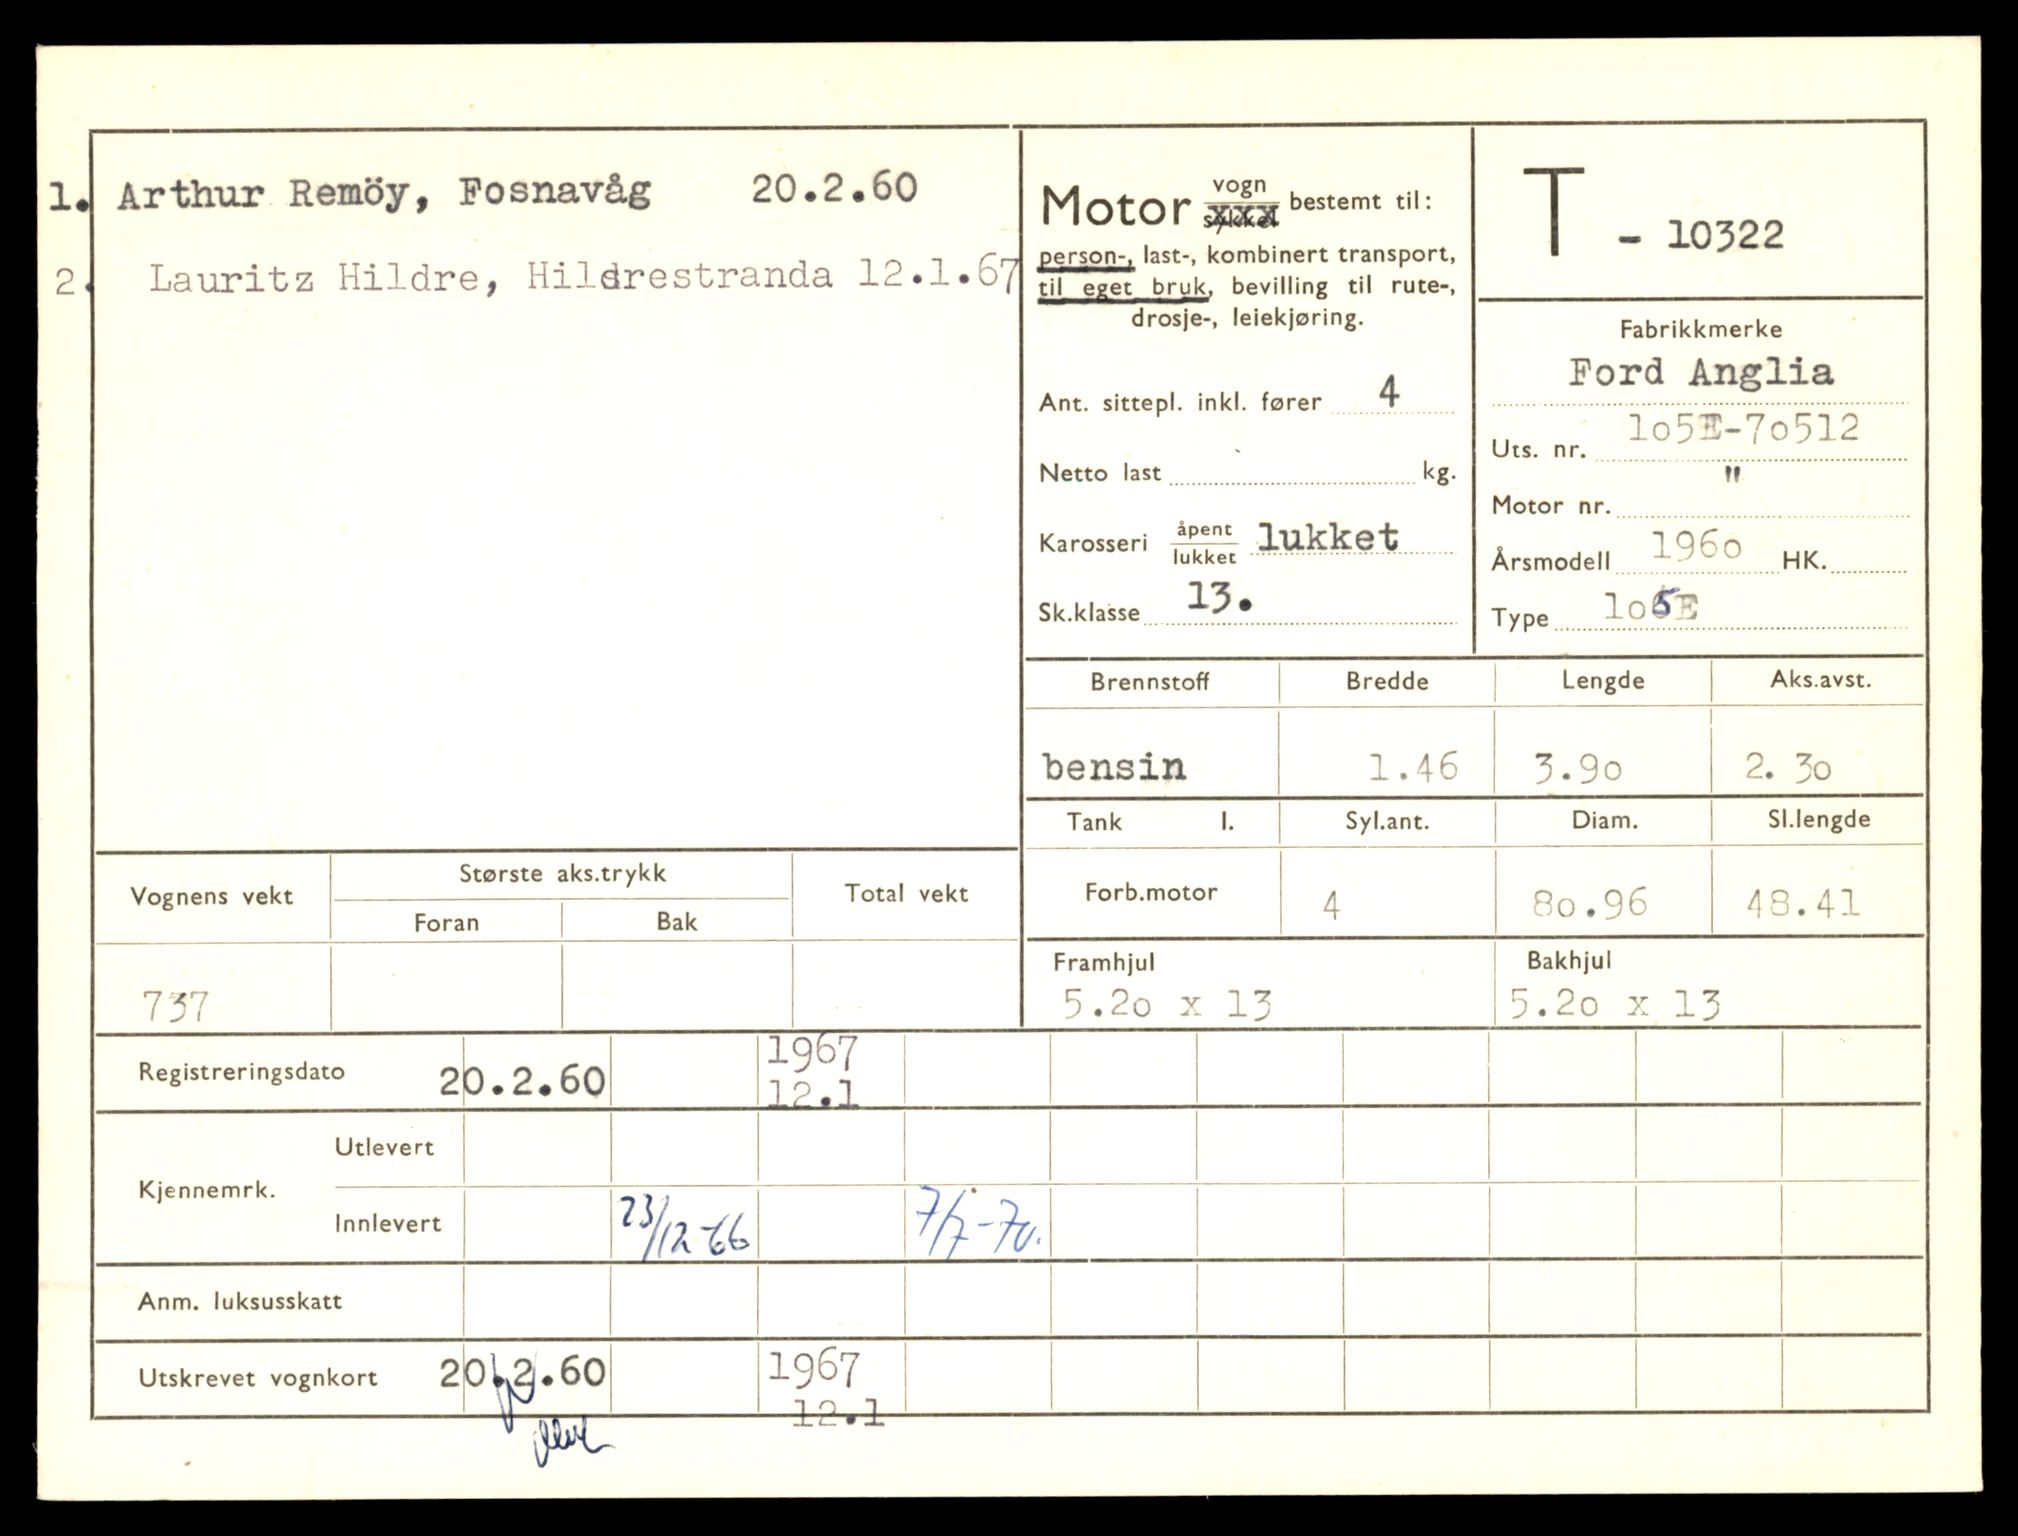 1. Arthur Remöy, Fosnavåg 20.2.60
2. Lauritz Hildre, Hildrestranda 12.1.67
Motor vogn sykkel bestemt til:
person-, last-, kombinert transport,
til eget bruk, bevilling til rute-,
drosje-, leiekjøring.
Ant. sittepl. inkl. fører 4
Netto last kg.
Karosseri åpent lukket lukket
Sk.klasse 13.
T - 10322
Fabrikkmerke
Ford Anglia
Uts. nr. 1o5E-7o512
Motor nr. "
Årsmodell 196o HK.
Type 1o5E
Brennstoff Bredde Lengde Aks.avst.
bensin 1.46 3.9o 2. 3o
Tank l. Syl.ant. Diam. Sl.lengde
Forb.motor 4 8o.96 48.41
Framhjul Bakhjul
5.2o x 13 5.2o x 13
Vognens vekt Største aks.trykk Total vekt
Foran Bak
737
Registreringsdato 20.2.60 1967
12.1
Kjennemrk. Utlevert
Innlevert 23/12-66 7/7-70.
Anm. luksusskatt
Utskrevet vognkort 20.2.60 1967
12.1